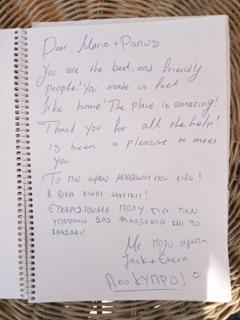 Dear Maria + Panos
You are the best, and friendly
people! You made us feel
like home! The place is amazing!
Thank you for all the help!
is been a pleasure to meet
you
Το πιο ωραίο μπαλκόνι που είδα!
Η ΘΕΑ ΕΙΝΑΙ ΜΑΓΙΚΗ!
ΕΥΧΑΡΙΣΤΟΥΜΕ ΠΟΛΥ ΓΙΑ ΤΗΝ
ΥΠΕΡΟΧΗ ΣΑΣ ΦΙΛΟΞΕΝΙΑ ΚΑΙ ΤΟ
ΚΡΑΣΑΚΙ!
Με πολύ αγάπη
Jack + Έλενα
Από ΚΥΠΡΟ!